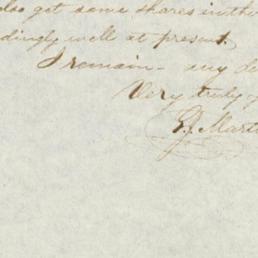 also get some shares in the
dingly well at present.
I remain - my de
Very truly y
E. J. Mart